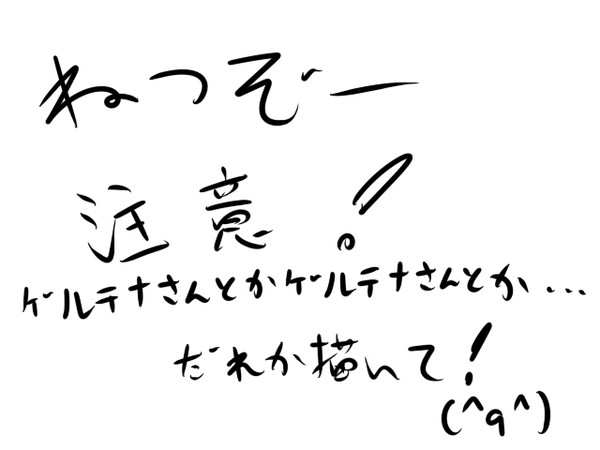 ねつぞー
注意!
ゲルテナさんとかゲルテナさんとか...
だれか描いて!
(^q^)